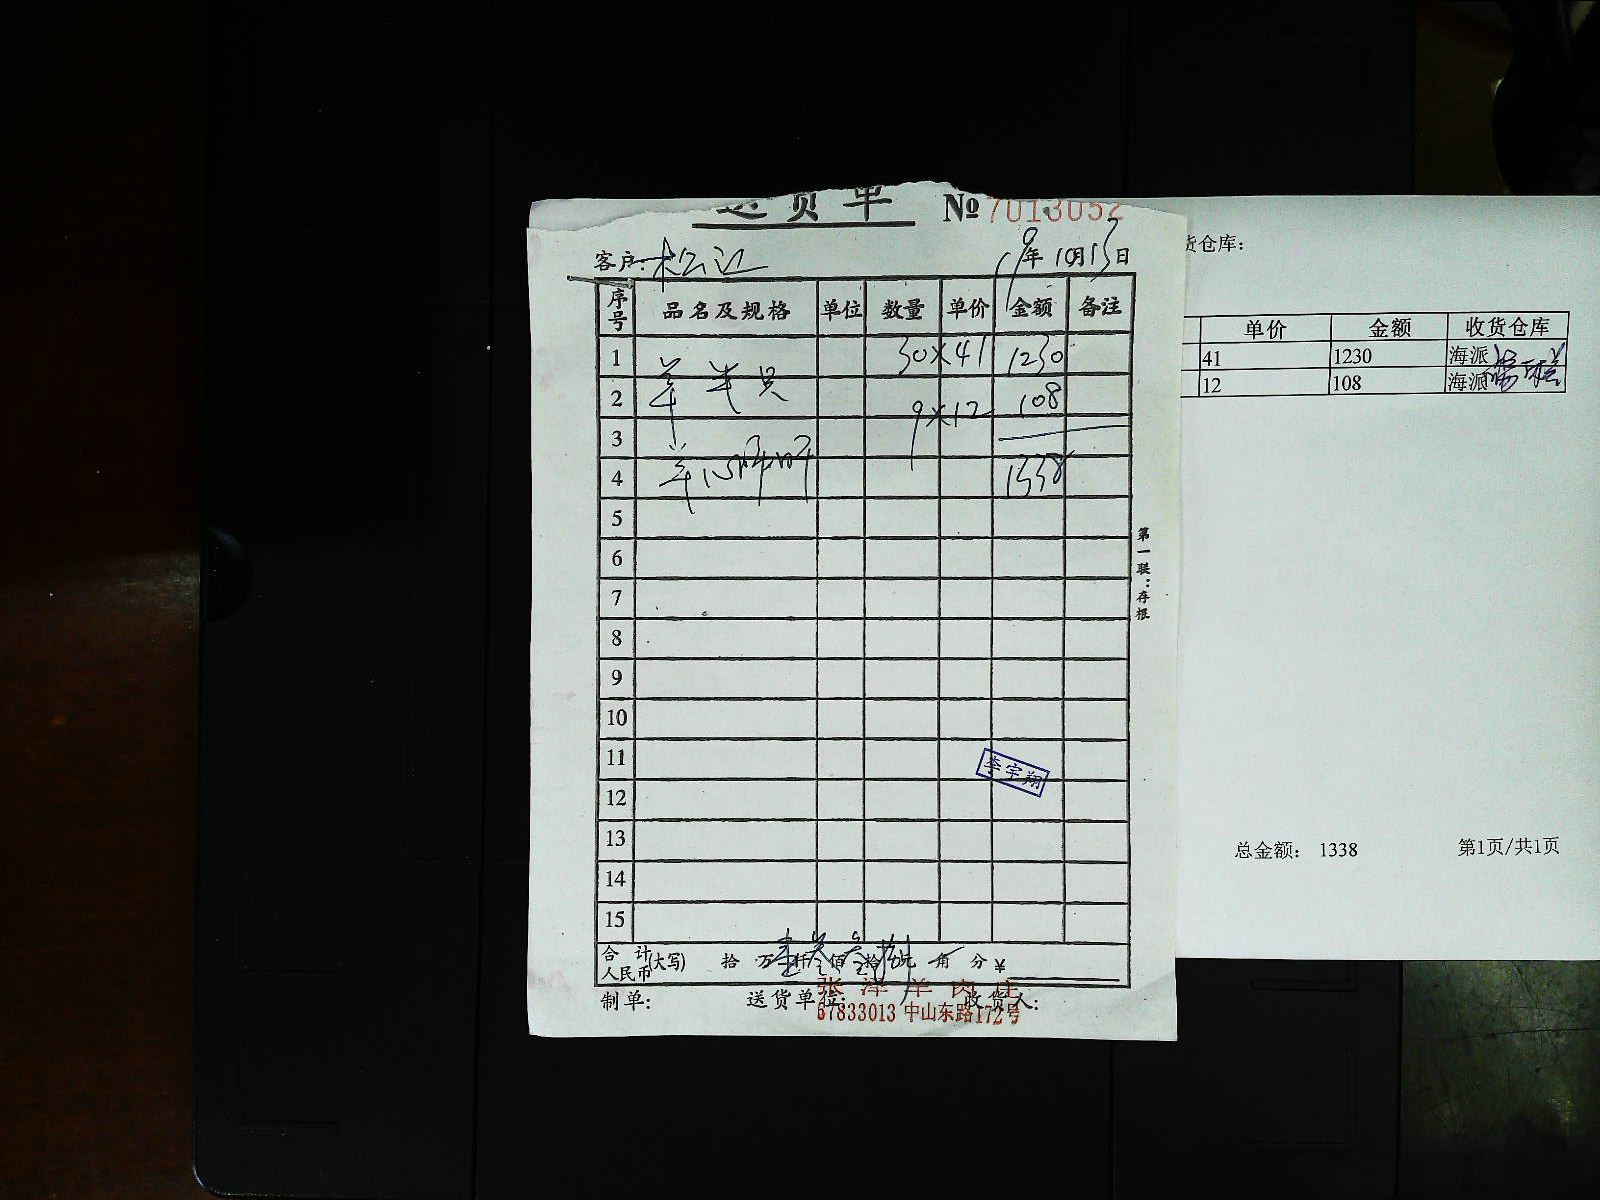 送货单 № 7013052
客户: 松江 19年10月13日
序号 品名及规格 单位 数量 单价 金额 备注
1 30×41 1230
羊 半只
2 9×12 108
3
羊心肺
4 1338
5
6
7
8
9
10
11
李宇翔
12
13
14
15
合计人民币(大写) 拾 万 仟 佰 拾 元 角 分 ¥
制单: 送货单位: 收货人:
张泽羊肉庄
67833013 中山东路172号
第一联:存根
货仓库:
单价 金额 收货仓库
41 1230 海派
12 108 海派
总金额: 1338 第1页/共1页